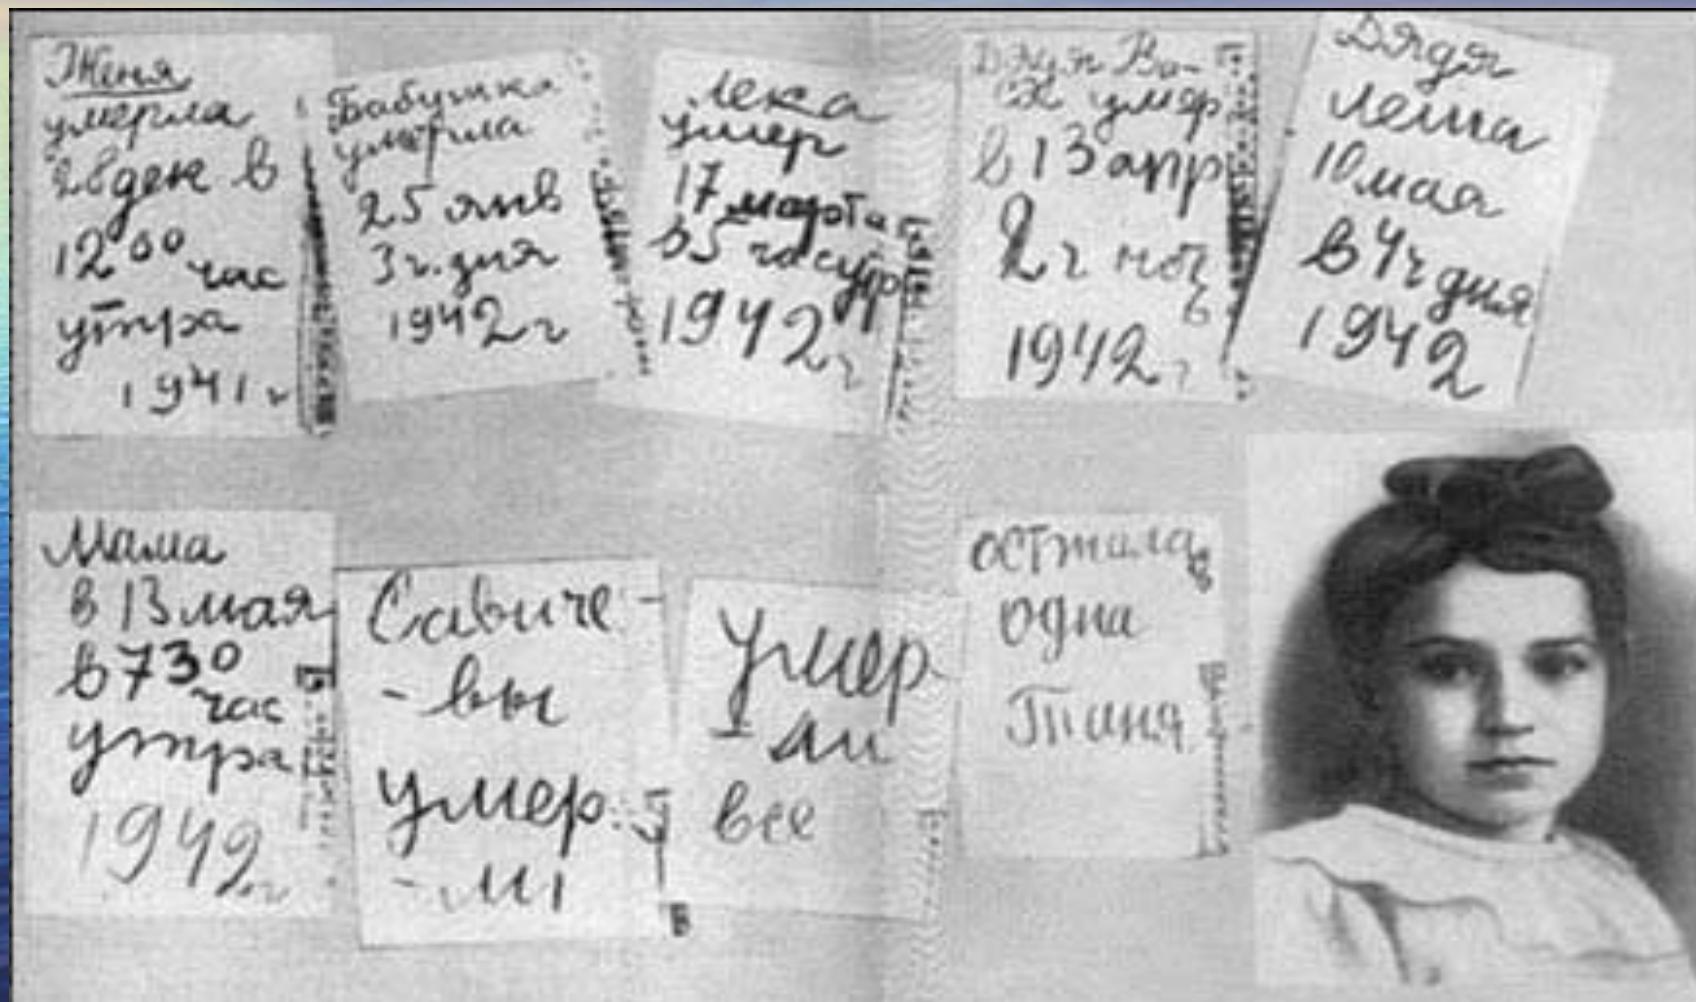 Женя
умерла
28 дек в
12⁰⁰ час
утра
1941 г
Бабушка
умерла
25 янв
3 ч. дня
1942 г
Лека
умер
17 марта
в 5 час утр
1942 г
Дядя Ва-
ся умер
в 13 апр
2 ч ноч
ь
1942 г
Дядя
Леша
10 мая
в 4 ч дня
1942
Мама
в 13 мая
в 7 30
час
утра
1942 г
Савиче-
-вы
умер
-ли
Умер
-ли
все
Осталась
одна
Таня